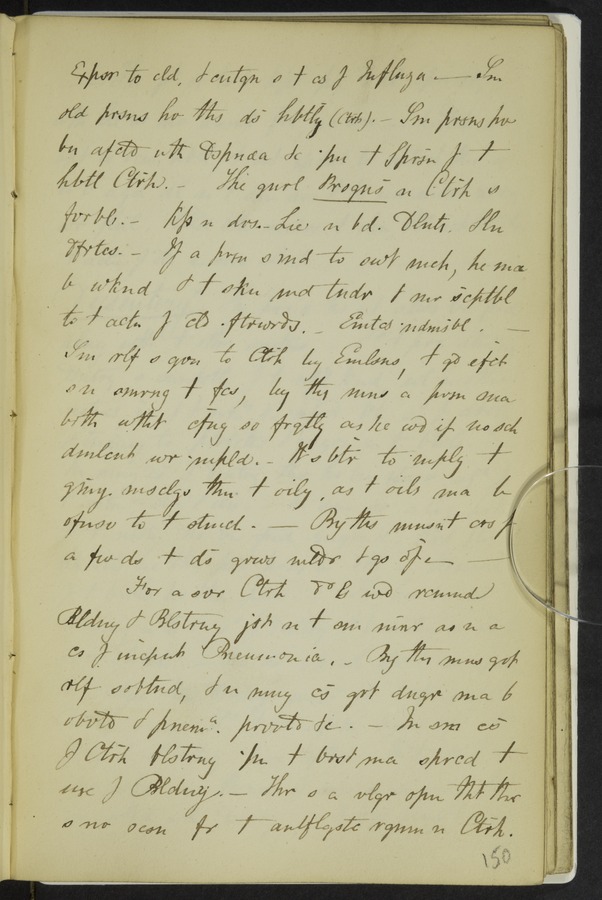 Expsr to cld, & cntgn s t cs f Influza — Sm
old prsns hv ths ds hbtly (Ctrh). — Sm prsns hv
bn afctd wth Dspnœa &c pn t Sprsn f t
hbtl Ctrh. — The gnrl Prognss n Ctrh s
forbl. — Kp n drs. Lie n bd. Dlnts. Sln
If a prsn s md to swt mch, he ma
b wknd & t skn md tndr & mr scptbl
to t actn f cld ftrwrds. — Emtcs ndmsbl. —
Sm rlf s gvn to Ctrh by Emlsns, t gd efct
s n smrng t fcs, by ths mns a prsn ma
brth wtht cfng so frqtly as he wd if no sch
dmlcnt wr mpld. — It s btr to mply t
gmy. msclgs thn t oily, as t oils ma b
ofnsv to t stmch. — By ths mns t crs f
a fw ds t ds grws mldr & gs of —
For a svr Ctrh Dr E wd rcmnd
Bldng & Blstrng jst n t sm mnr as n a
cs f incpnt Pneumonia. — By ths mns grt
rlf s obtnd, & n mny cs grt dngr ma b
obvtd & pnema. prvntd &c. — In sm cs
f Ctrh blstrng pn t brst ma sprcd t
use f Bldng. — Thr s a vlgr opn tht thr
s no ocsn fr t antflgstc rgmn n Ctrh.
150